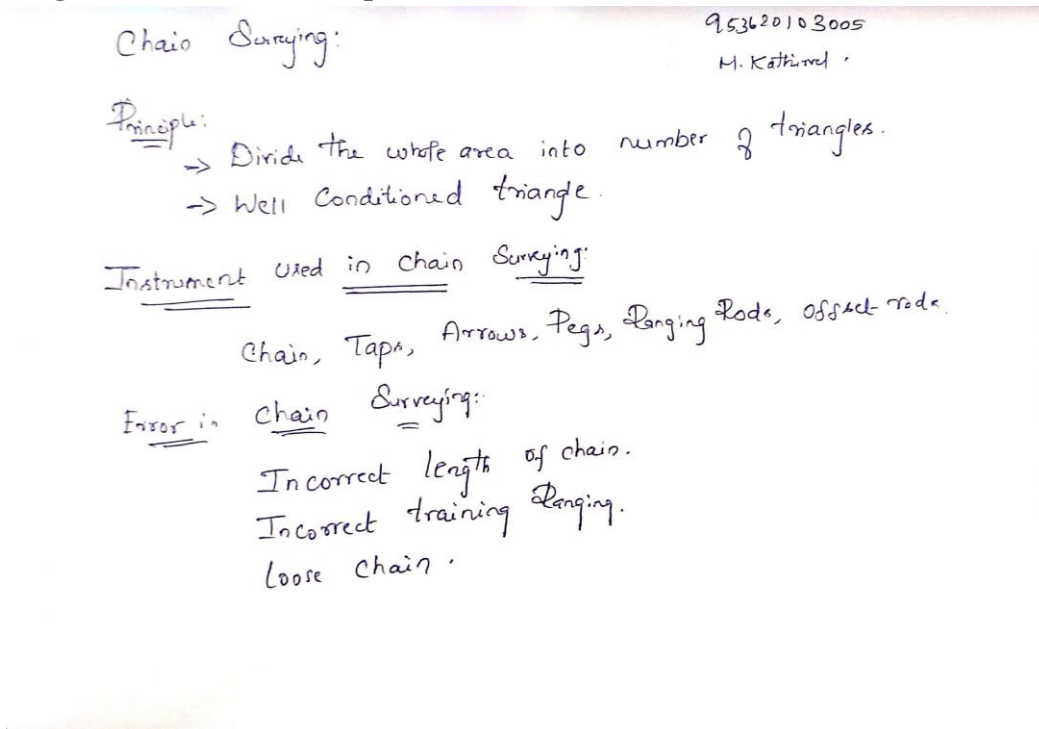 Chain Surveying:
953620103005
M. Kathirvel.
Principle:
-> Divide the whole area into number of triangles.
-> Well Conditioned triangle.
Instrument used in chain Surveying:
Chain, Taps, Arrows, Pegs, Ranging Rods, offset rods.
Error in Chain Surveying:
Incorrect length of chain.
Incorrect training Ranging.
loose Chain.